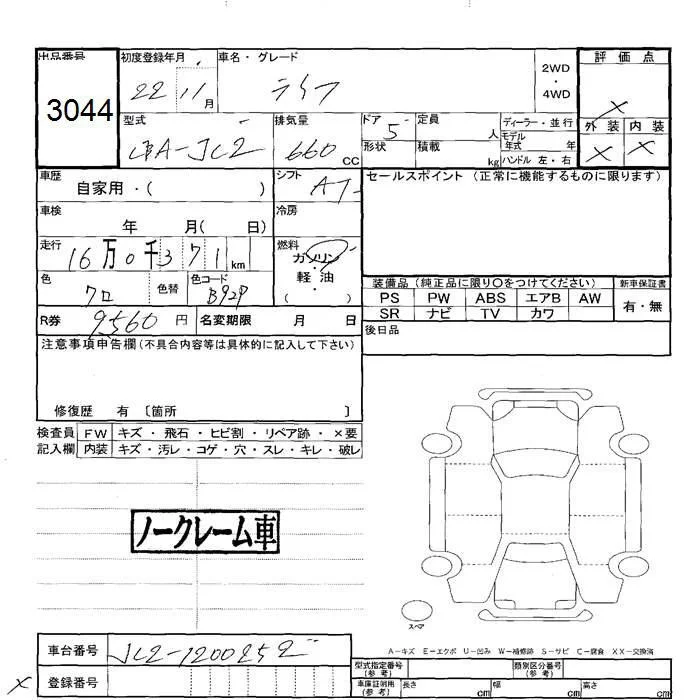 出品番号 初度登録年月 車名・グレード 2WD ・ 4WD 評価点
3044 22 11月 ライフ ×
外装 内装
× ×
型式 排気量 ドア 5 定員 人 ディーラー・並行
モデル年式 年
CBA-JC2 660 CC 形状 積載 kg ハンドル 左・右
車歴 自家用・( ) シフト AT セールスポイント(正常に機能するものに限ります)
車検 年 月( 日) 冷房
走行 16万0千371km 燃料 ガソリン
軽・油
( )
色 クロ 色替 色コード B92P
装備品(純正品に限り〇をつけてください) 新車保証書
PS PW ABS エアB AW 有・無
SR ナビ TV カワ
R券 9560円 名変期限 月 日
後日品
注意事項申告欄(不具合内容等は具体的に記入して下さい)
修復歴 有 〔箇所 〕
検査員 FW キズ・飛石・ヒビ割・リペア跡・×要
記入欄 内装 キズ・汚レ・コゲ・穴・スレ・キレ・破レ
ノークレーム車
スペア
A-キズ E-エクボ U-凹み W-補修跡 S-サビ C-腐食 XX-交換済
車台番号 JC2-1200252
登録番号
×
型式指定番号(参考) 類別区分番号(参考)
車庫証明用(参考) 長さ cm 幅 cm 高さ cm